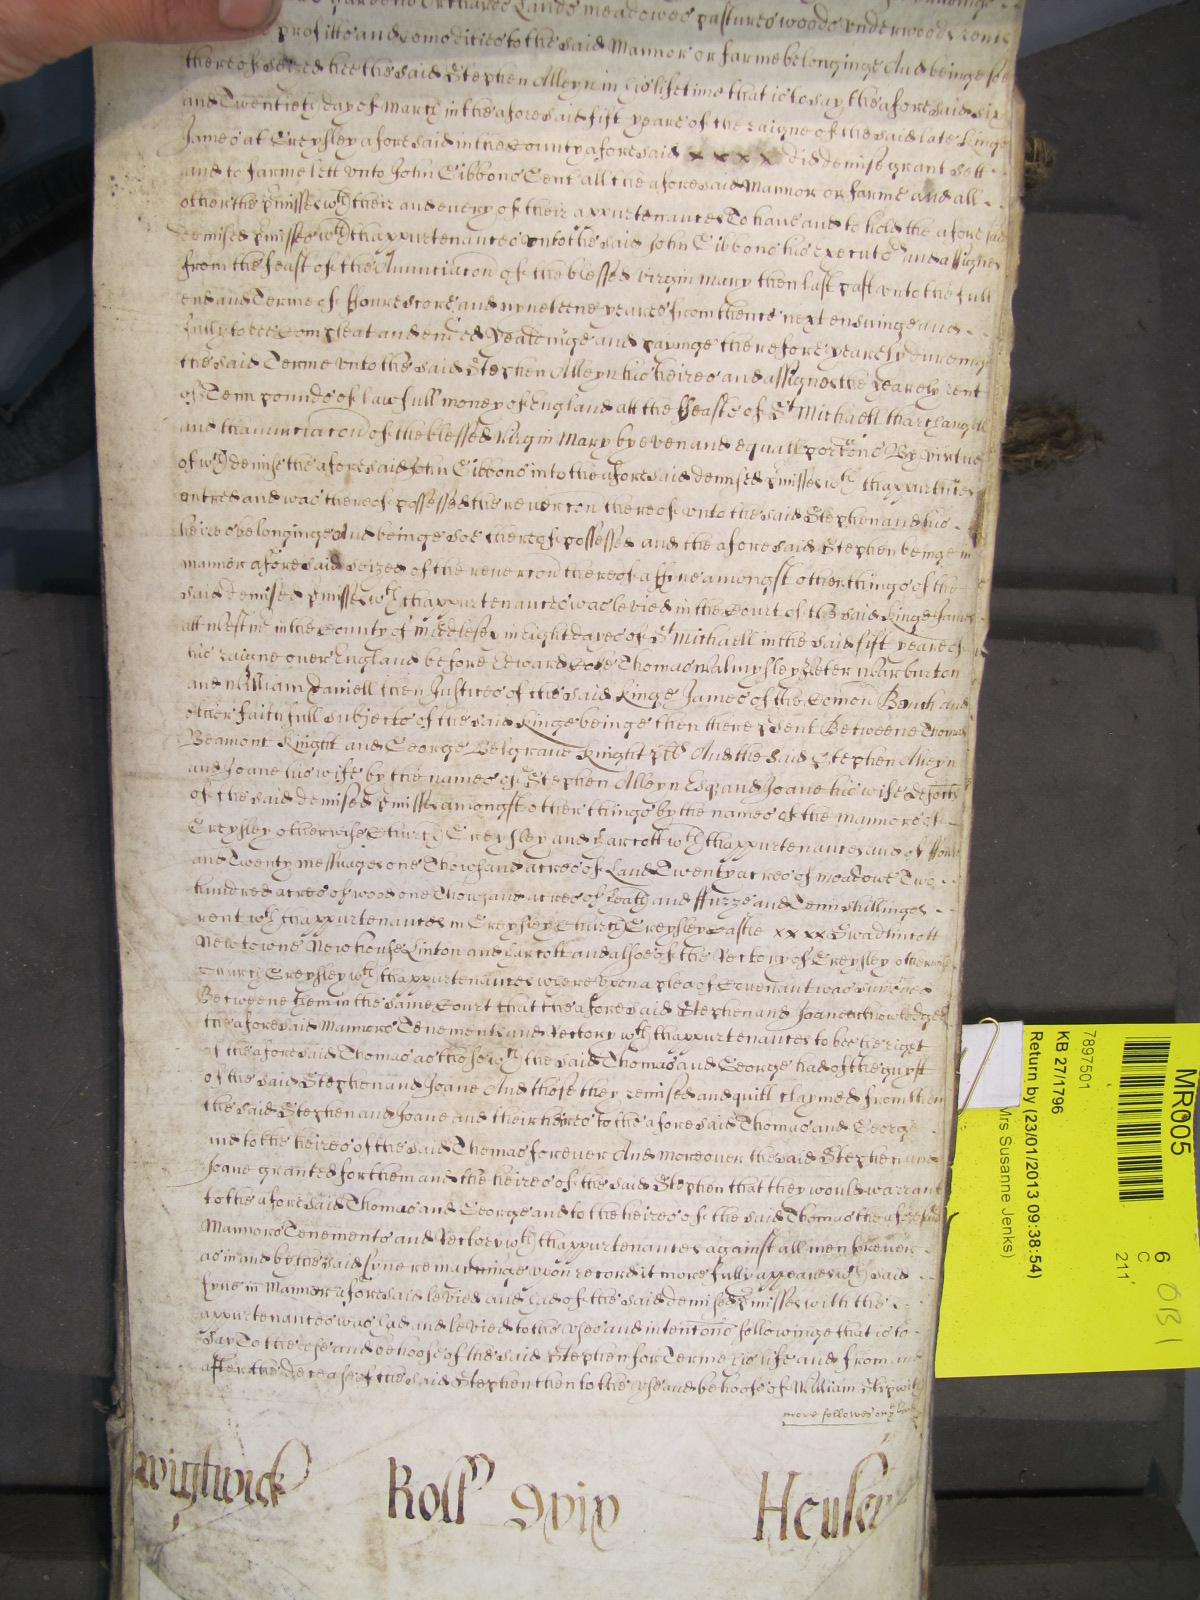 Orchards Lands meadowes pastures woods underwoods rents
profitts and comodities to the said Mannor or farme belonginge And beinge soe
thereof seized hee the said Stephen Alleyn in his lifetime that is to say the aforesaid six
and Twentieth day of March in the aforesaid fift yeare of the raigne of the said late Kinge
James at Greysley aforesaid in the County aforesaid x x x x did demise grant sett
and to farme lett unto John Gibbons Gent all the aforesaid Mannor or farme and all
other the p̱misses wth their and every of their appurtenances To have and to hold the afore said
demised p̱misses wth thappurtenances unto the said John Gibbons his executors and assignes
from the feast of the Annunciacon of the blessed virgin Mary then last past unto the full
end and Terme of ffourescore and nyneteene yeares from thence next ensuinge and
fully to bee compleat and ended Yealdinge and payinge therefore yearely duringe
the said Terme unto the said Stephen Alleyn his heires and assignes the yearely rent
of Tenn pounds of lawfull money of England att the ffeasts of St Michaell tharchangell
and thanunciacon of the blessed virgin Mary by even and equall porcons By virtue
of wch demise the aforesaid John Gibbons into the aforesaid demised p̱misses wth thappurtnces
entred and was thereof possessed the revercon thereof unto the said Stephen and his
heires belonginge And beinge soe thereof possessed and the aforesaid Stephen beinge in
manner aforesaid seized of the revercon thereof a ffine amongst other things of the
said demised p̱misses wth thappurtenances was levied in the Court of the said Kinge James
att Westmr in the County of Middlesex in Eight dayes of St Michaell in the said fift yeare of
his raigne over England before Edward Coke Thomas Walmysley Peter Warburton
and William Daniell then Justices of the said Kinge James of the Comon Bench and
other faithfull subjects of the said Kinge beinge then there p̱sent Betweene Thomas
Beamont Knight and George Belgrave Knight plts And the said Stephen Alleyn
and Joane his wife by the names of Stephen Alleyn Esq and Joane his wife deforts
of the said demised p̱misses amongst other things by the names of the Mannors of
Greysley otherwise Church Greysley and Larcott wth thappurtenances and of ffoure
and Twenty messuages one Thowsand acres of Land Twenty acres of meadowe Two
hundred acres of wood one Thowsand acres of heath and ffurze and Tenn shillinges
rent wth thappurtenances in Greysley Church Greysley Castle xxxx Swadlincott
Newtowne Newhouse Linton and Larcott and alsoe of the Rectory of Greysley otherwise
Church Greysley wth thappurtenances whereupon a plea of Covenant was sumoned
Betweene them in the same Court that the aforesaid Stephen and Joane acknowledged
the aforesaid Mannors Tenements and Rectory wth thappurtenances to bee the right
of the aforesaid Thomas as those wch the said Thomas and George had of the guyft
of the said Stephen and Joane And those they remised and quitt claymed from them
the said Stephen and Joane and their heires to the aforesaid Thomas and George
and to the heires of the said Thomas forever And moreover the said Stephen and
Joane granted for them and the heires of the said Stephen that they would warrant
to the aforesaid Thomas and George and to the heires of the said Thomas the aforesaid
Mannors Tenements and Rectory wth thappurtenances against all men forever
as in and by the said fyne remaininge upon record it more fully appeares wch said
fyne in Manner aforesaid levied and had of the said demised p̱misses with the
appurtenances was had and levied to the uses and intentons followinge that is to
say To the use and behoofe of the said Stephen for Terme of his life and from and
after the decease of the said Stephen then to the use and behoofe of William Skipwith
more followes on ye back
Wightwick Roll 9 xix Henley
MR005
7897501
KB 27/1796
Return by (23/01/2013 09:38:54)
Mrs Susanne Jenks)
6
C
211
OB1